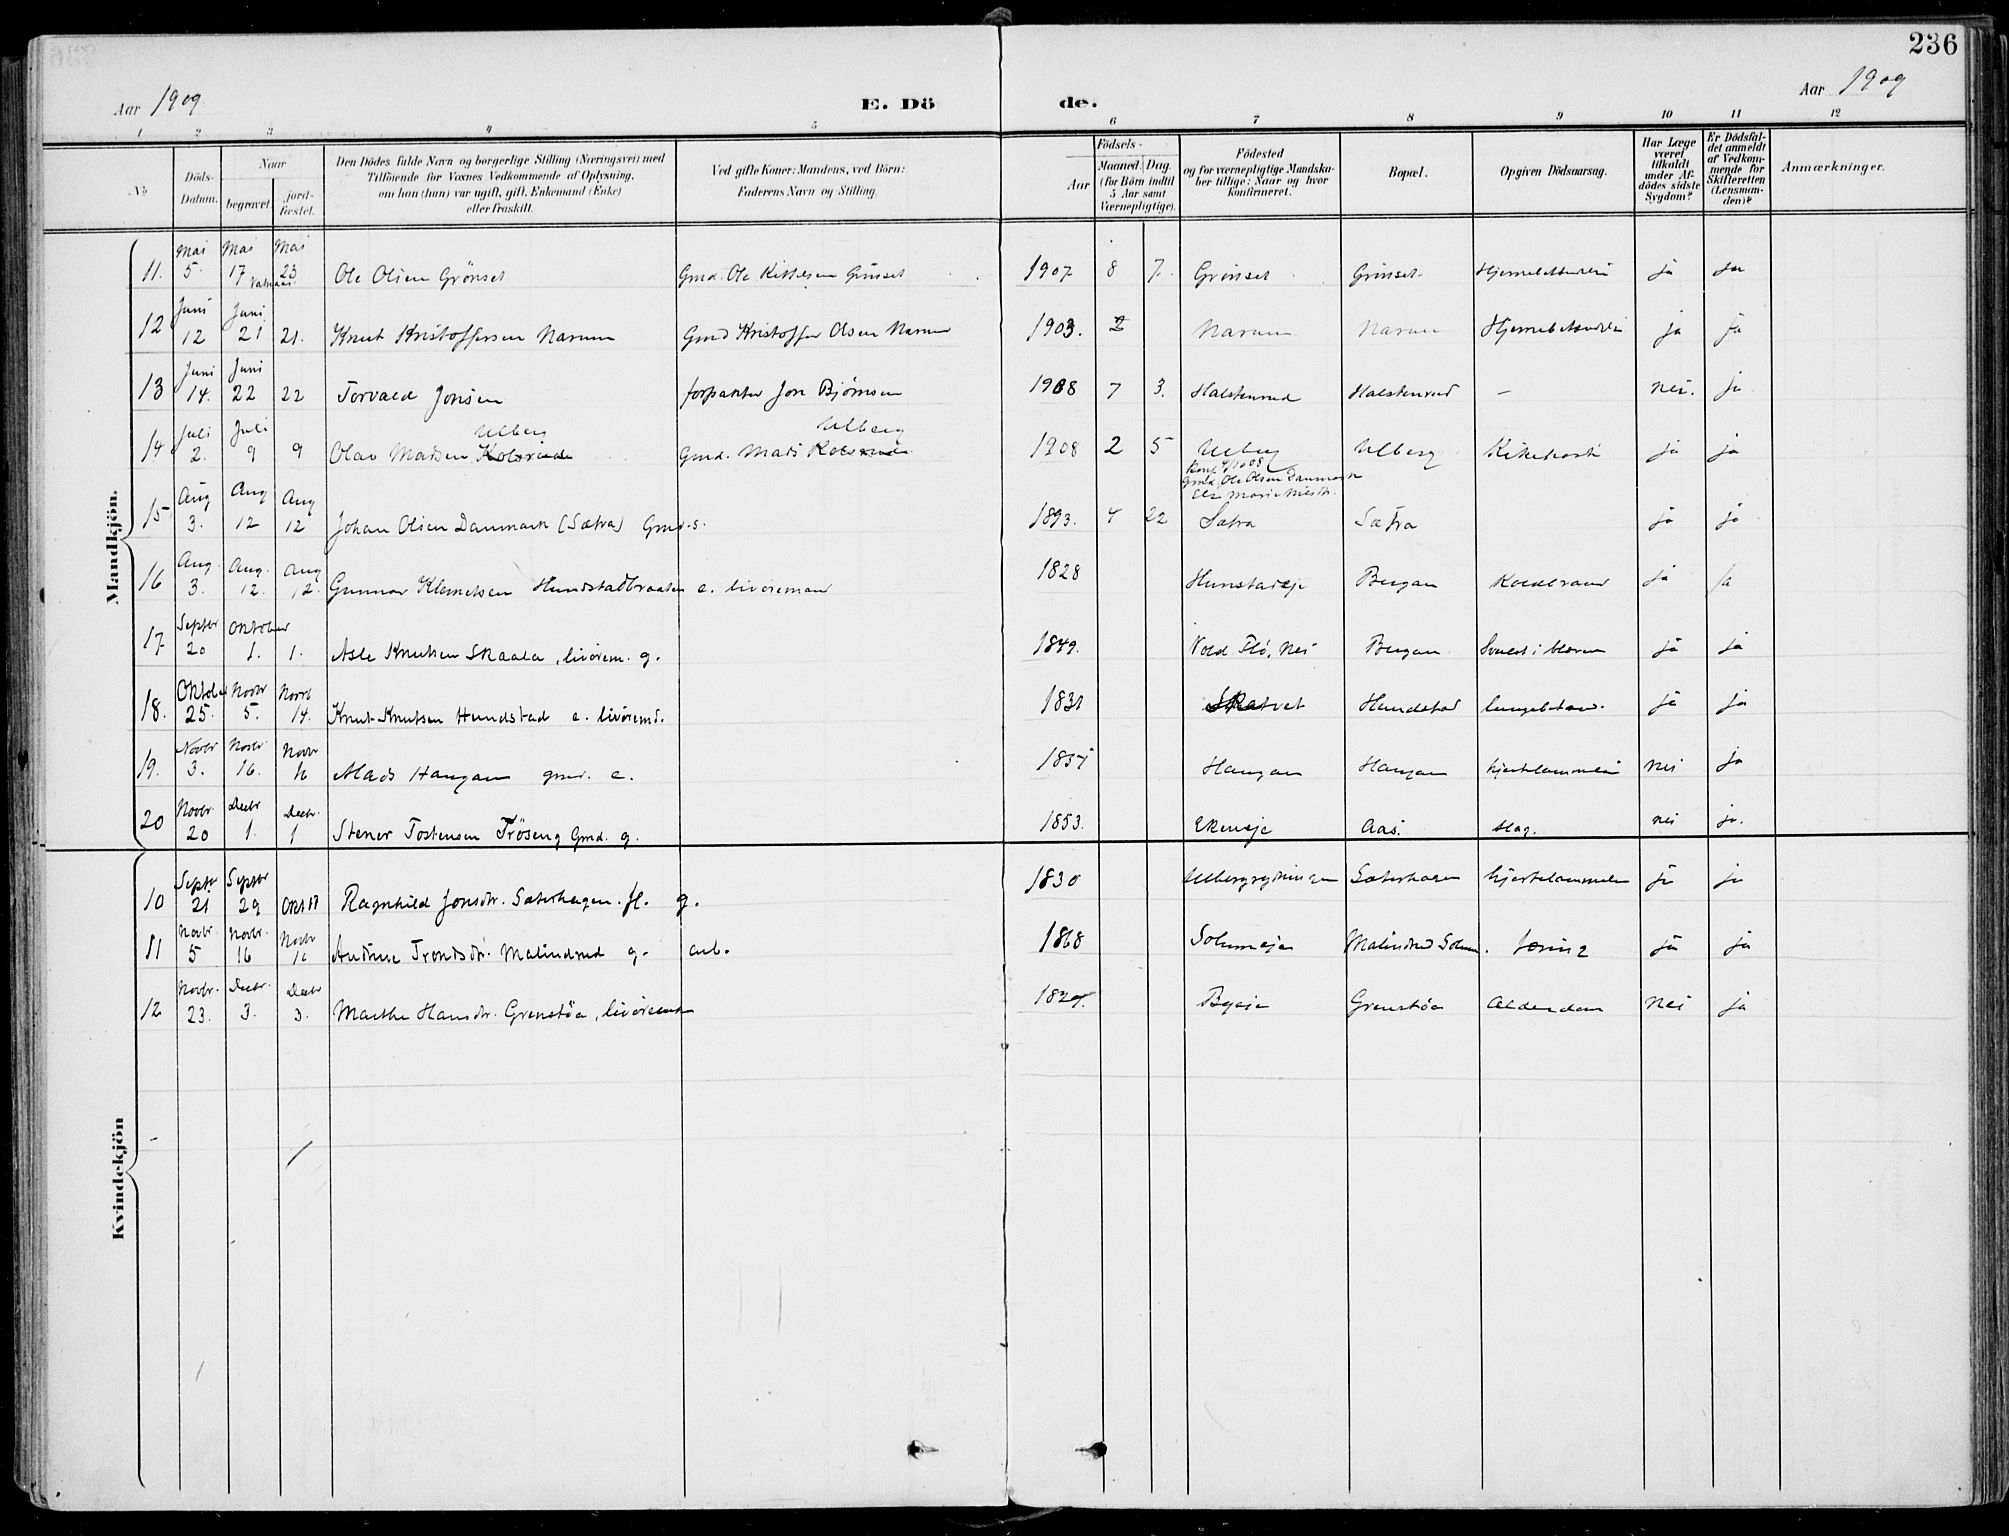 236
Aar 1909
E. Dö de.
Aar 1909
1 2 3 4 5 6 7 8 9 10 11 12
No
Döds-Datum.
Naar
begravet.
jord-fæstet.
Den Dödes fulde Navn og borgerlige Stilling (Næringsvei) med
Tilföiende for Voxnes Vedkommende af Oplysning,
om han (hun) var ugift, gift, Enkemand (Enke)
eller fraskilt.
Ved gifte Koner: Mandens, ved Börn:
Faderens Navn og Stilling.
Födsels-
Aar
Maaned. Dag.
(for Börn indtil
5 Aar samt
Værnepligtige).
Födested
og for værnepligtige Mandska-
ber tillige: Naar og hvor
konfirmeret.
Bopæl.
Opgiven Dödsaarsag.
Har Læge
været
tilkaldt
under Af-
dödes sidste
Sygdom?
Er Dödsfal-
det anmeldt
af Vedkom-
mende for
Skifteretten
(Lensman-
den)?
Anmærkninger.
Mandkjön.
11. Mai 5. Mai 17 Mai 23 Ole Olsen Grönset Gmd. Ole Kittelsen Grönset 1907 8 7. Grönset Grönset ja ja
12 Juni 12 Juni 21 21. Knut Kristoffersen Narum Gmd Kristoffer Olsen Narum 1903. 2 Narum Narum ja ja
13 Juni 14. Juni 22 22 Torvald Jonsen forpakter Jon Björnsen 1908 7 3. Halstenrud Halstenrud – nei. ja
Ulberg Ulberg
14 Juli 2. Juli 9 9 Olav Madsen Gmd. Mads 1908 2 5 Ulberg Ulberg Kikehoste ja ja
Gmd. Ole Olsen Danmark
15 Aug 3. Aug 12 Aug 12 Johan Olsen Danmark (Sætra) Gmd. s. 1893. 4 22 Sætra Sætra ja ja
16 Aug. 3. Aug. 12. Aug 12. Gunnar Klemetsen Hundstadbraaten e. livöremand 1828 Hunstadeje Bergan Koldbrand ja ja
17 Septbr 20 Oktober 1. 1. Asle Knutsen Skaala, livörem. g. 1849. Bergan ja ja
18. Oktober 25. Novbr 5. Novbr 14. Knut Knutsen Hundstad e. livöremd. 1831 Skatvet Hundstad ja ja
19. Novbr 3. Novbr 16. Novbr 16 Mads Haugan gmd. e. Haugan Haugan hjertelammelse nei ja
20 Novbr. 20 Decbr 1. Decbr. 1 Stener Tostensen Tröseng Gmd. g. 1853. Ekeneje Aas. slag. nei ja.
Kvindekjön
10 Septbr 21 Septbr 29 Okt 17 Ragnhild Jonsdtr. Sæterhagen. fl. g. 1830 Sæterhagen hjertelammelse ja ja
11 Novbr. 5 Novbr. 16 Novbr 16 Andrine Trondsdtr. Malindrud g. arb. 1868 Solumeje Malindrud Solum. ja ja
12 Novbr. 23. Decbr. 3. Decbr 3. Marthe Hansdtr. Grenstöa, livörenke Byeje Grenstöa Alderdom nei ja